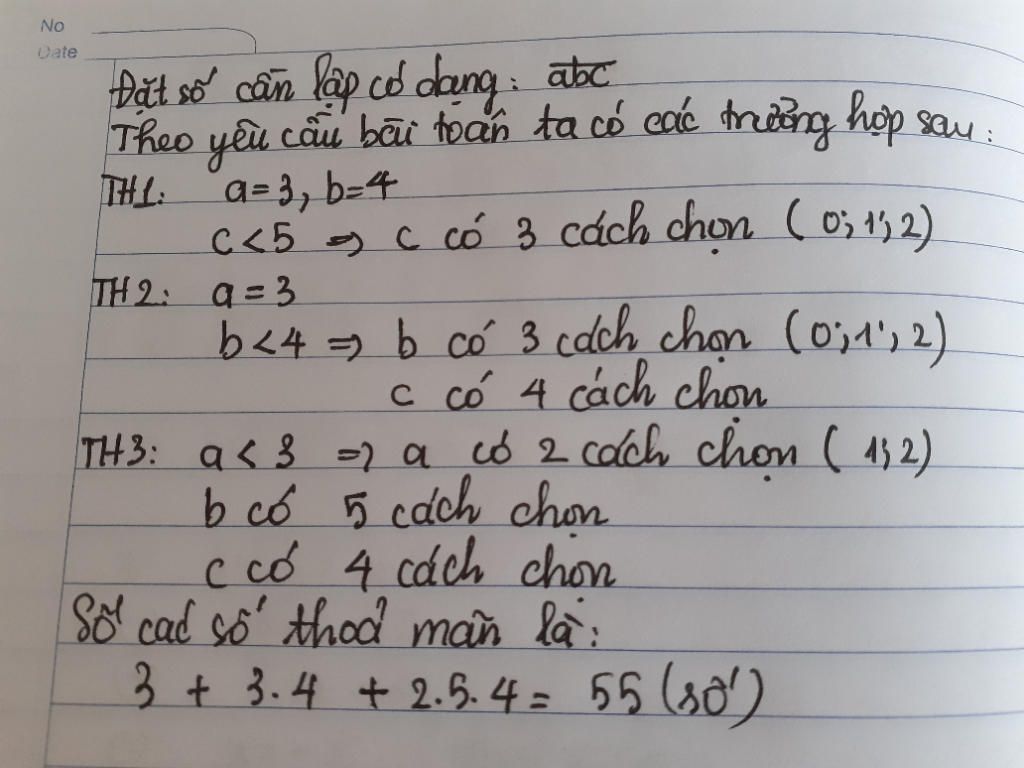 No
Date
Đặt số cần lập có dạng: abc
Theo yêu cầu bài toán ta có các trường hợp sau:
TH1: a=3, b=4
c<5 => c có 3 cách chọn (0;1;2)
TH2: a=3
b<4 => b có 3 cách chọn (0;1;2)
c có 4 cách chọn
TH3: a<3 => a có 2 cách chọn (1;2)
b có 5 cách chọn
c có 4 cách chọn
Số các số thoả mãn là:
3 + 3.4 + 2.5.4 = 55 (số)